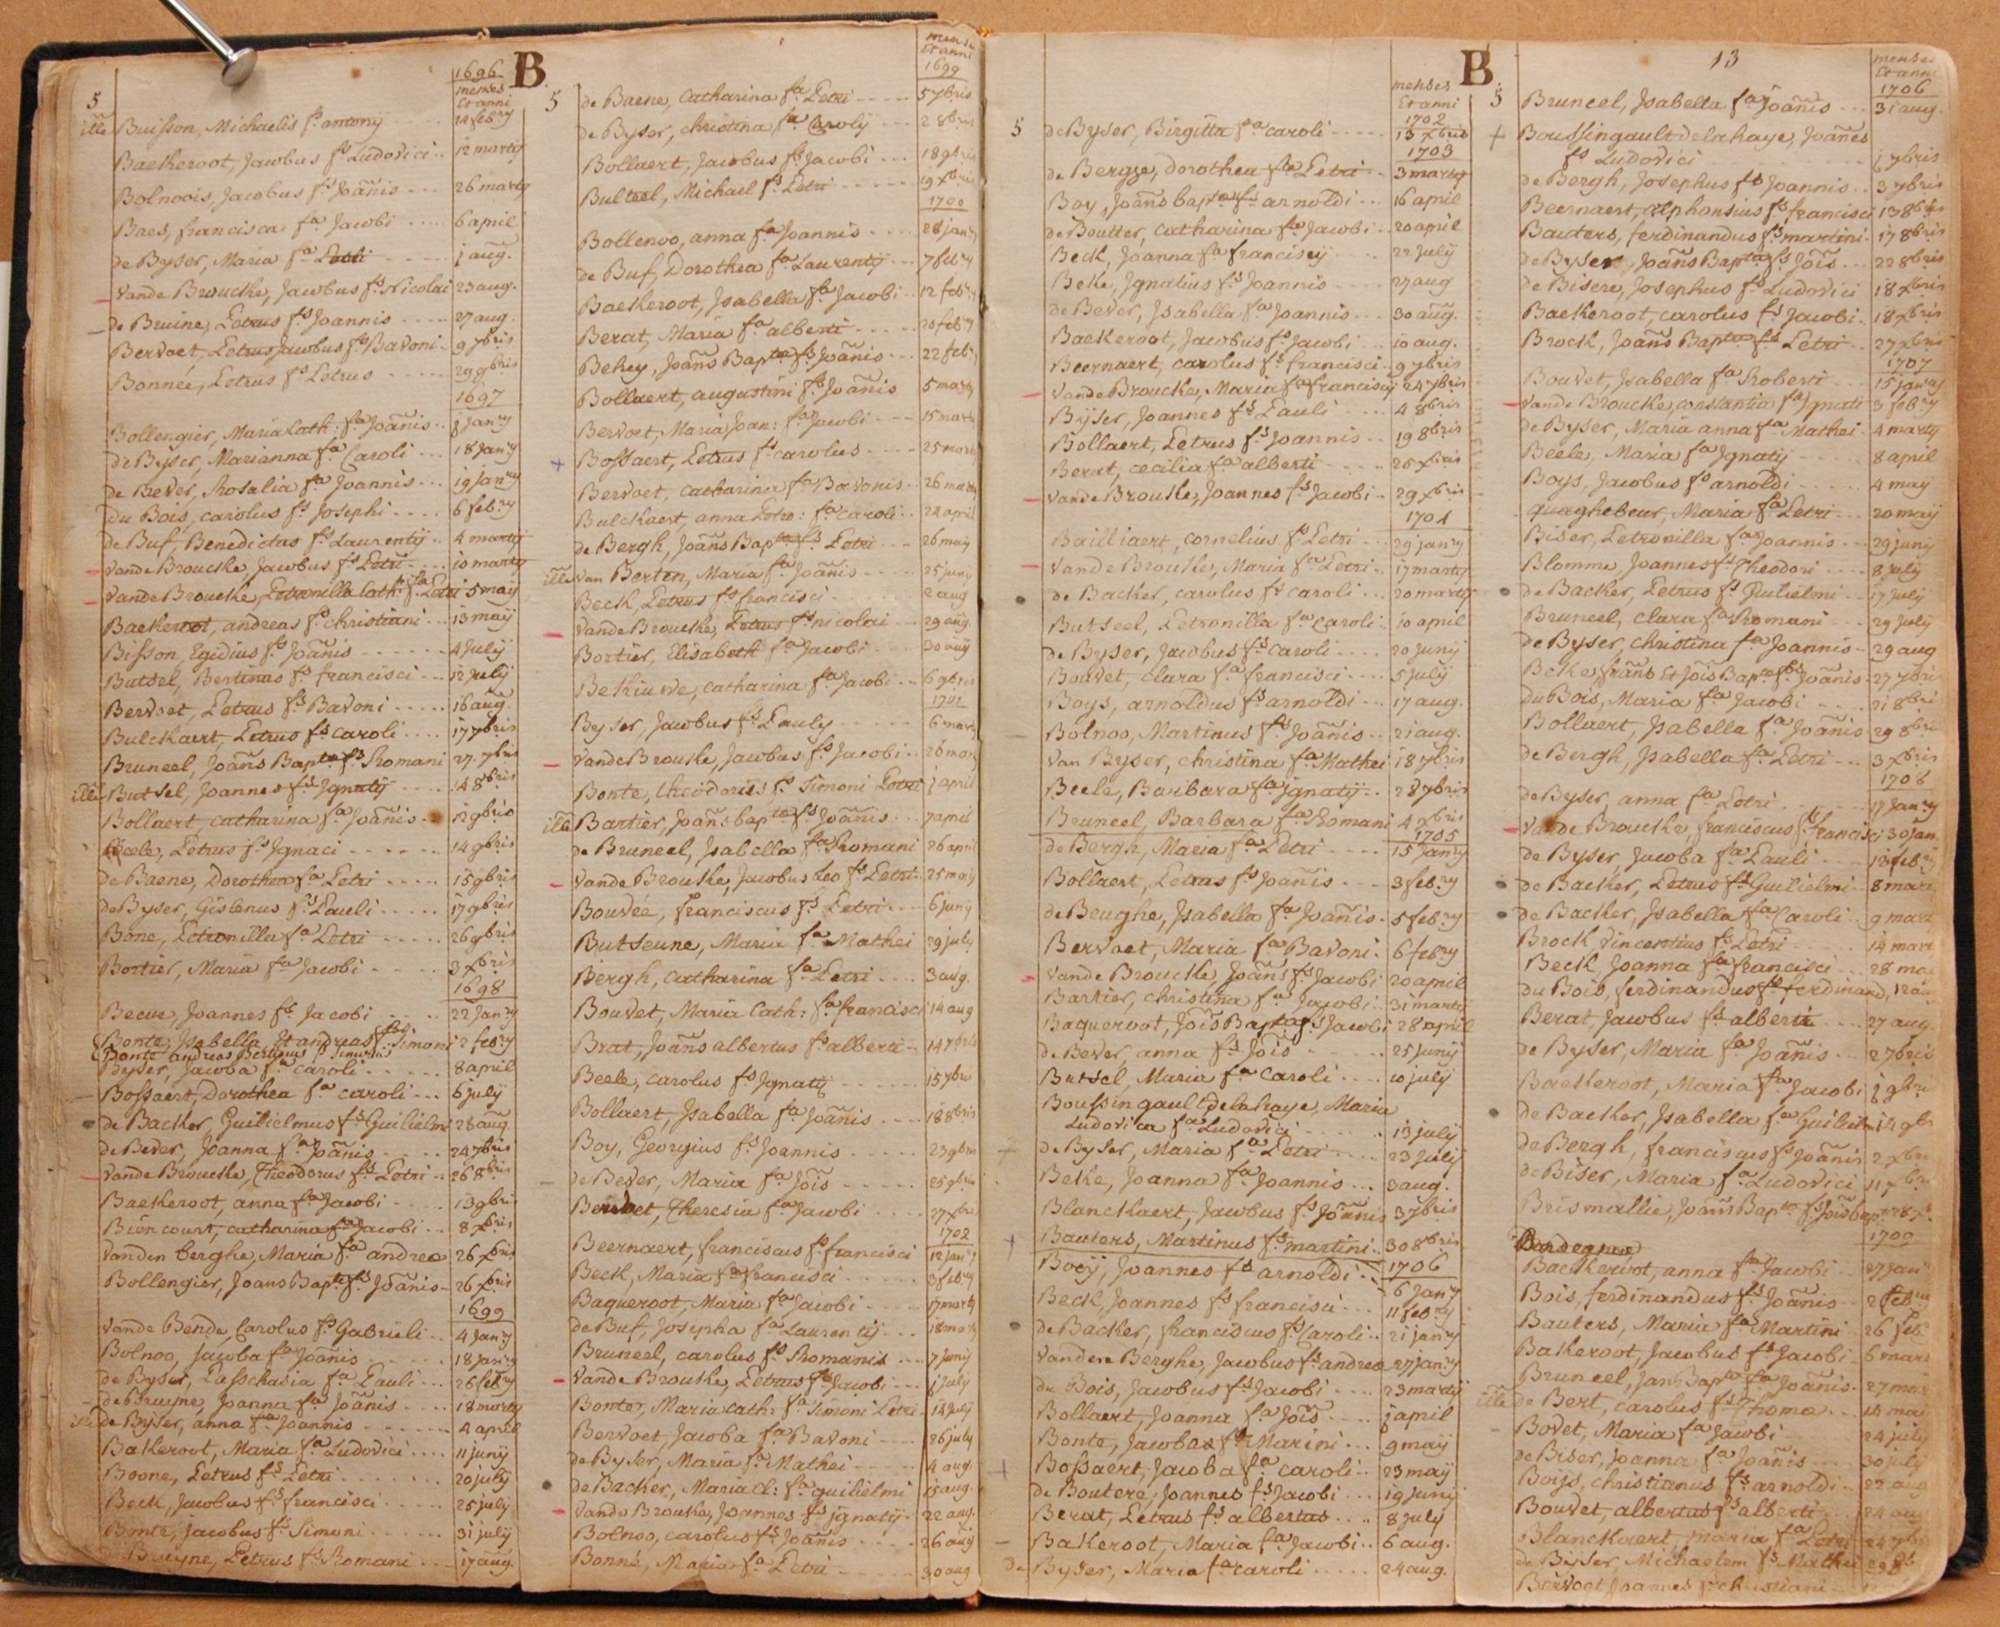 B
1696
menses
Et anni
5
ille Buisson, Michaelis fs antony 20 feb:ry
Baekeroot, Jacobus fs Ludovici 12 marty
Bolnoois, Jacobus fs Joañis 26 marty
Baes, francisca fa Jacobi 6 april
de Byser, Maria fa Petri j aug.
vande Broucke, Jacobus fs Nicolai 23 aug.
de Bruine, Petrus fs Joannis 27 aug.
Bervoet, Petrus Jacobus fs Bavoni 9 7bris
Bonnéé, Petrus fs Petrus 29 gbris
1697
Bollengier, Maria Cath: fa Joañis 8 Janry
de Byser, Marianna fa Caroli 18 Janry
de Bever, Rosalia fa Joannis 19 Janry
du Bois, carolus fs Josephi 6 febry
de Buf, Benedictus fs Laurentij 4 martij
vande Broucke, Jacobus fs Petri 10 marty
vande Broucke, Petronilla Cath: fa Petri 5 maij
Baekeroot, andreas fs christiani 13 maij
Bisson, Egidius fs Joañis 4 July
Butsel, Bertinus fs francisci 12 July
Bervoet, Petrus fs Bavoni 16 aug.
Bulckaert, Petrus fs caroli 17 7bris
Bruneel, Joañs Bapta fs Romani 27 7bris
ille Butsel, Joannes fs Ignatij 4 8bris
Bollaert, catharina fa Joañis 12 gbris
Beele, Petrus fs Ignaci 14 gbris
de Baene, Dorothea fa Petri 15 gbris
de Byser, Gislenus fs Pauli 17 gbris
Bone, Petronilla fa Petri 26 gbris
Bortier, Maria fa Jacobi 3 xbris
1698
Becue, Joannes fs Jacobi 22 Janry
Bonte, Isabella Et andreas fs Simoni 2 febry
Bonte andreas Bertinus fs Simonis
Byser, Jacoba fa caroli 8 april
Bossaert, Dorothea fa caroli 6 july
de Backer, Guilielmus fs Guilielmi 28 aug.
de Bever, Joanna fa Joañis 24 7bris
vande Broucke, Theodorus fs Petri 26 8bris
Baekeroot, anna fa Jacobi 13 gbris
Biencourt, catharina fa Jacobi 8 xbris
vanden berghe, Maria fa andrea 26 xbris
Bollengier, Joans Bapta fs Joañis 26 xbris
1699
vande Bende Carolus fs Gabrieli 4 Janry
Bolnoo, Jacoba fa Joañis 18 Janry
de Byser, Passchasia fa Pauli 26 febry
de Bruyne, Joanna fa Joañis 18 marty
ille de Byser, anna fa Joannis 4 april
Bakeroot, Maria fa Ludovici 11 junij
Boone, Petrus fs Petri 20 july
Beck, Jacobus fs francisci 25 july
Bonte, Jacobus fs Simoni 31 july
Bruyne, Petrus fs Romani 17 aug.
mensis
Et anni
1699
5
de Baene, Catharina fa Petri 5 7bris
de Byser, christina fa Caroly 2 8bris
Bollaert, Jacobus fs Jacobi 18 gbris
Bulteel, Michael fs Petri 19 xbris
1700
Bollenoo, anna fa Joannis 28 janry
de Buf, Dorothea fa Laurenty 7 febry
Baekeroot, Isabella fa Jacobi 12 febry
Berat, Maria fa alberti 20 febry
Bekey, Joañs Bapta fs Joañis 22 feb
Bollaert, augustini fs Joañis 5 marty
Bervoet, Maria Joan: fa Jacobi 15 mart
+ Bossaert, Petrus fs carolus 25 mart
Bervoet, catharina fa Bavonis 26 marty
Bulckaert, anna Petro: fa caroli 24 april
de Bergh, Joañs Bapta fs Petri 26 maij
ille van Berten, Maria fa Joañis 25 juny
Beck, Petrus fs francisci 2 aug
vande Broucke, Petrus fs nicolai 29 aug
Bortier, Elisabeth fa Jacobi 30 aug
Bekiuwe, catharina fa Jacobi 6 gbris
1701
Byser, Jacobus fs Pauly 6 mart
vande Broucke, Jacobus fs Jacobi 26 mart
Bonte, theodorus fs Simoni Petri j april
ille Bartier, Joañs bapta fs Joañis 7 april
de Bruneel, Isabella fa Romani 26 april
vande Broucke, Jacobus Leo fs Petri 25 maij
Bouvée, franciscus fs Petri 6 juny
Butseune, Maria fa Mathei 29 july
Bergh, Catharina fa Petri 3 aug.
Bouvet, Maria Cath: fa francisci 14 aug
Brat, Joañs albertus fs alberti 14 7bris
Beele, carolus fs Ignaty 15 7bris
Bollaert, Isabella fa Joañis 18 8bris
Boy, Georgius fs Joannis 23 gbris
de Bever, Maria fa Jois 25 gbris
Bervoet, Theresia fa Jacobi 27 xbri
1702
Beernaert, franciscus fs francisci 12 Janry
Beck, Maria fa francisci 3 febry
Baqueroot, Maria fa Jacobi 17 marty
de Buf, Josepha fa Laurentij 18 marty
Bruneel, carolus fs Romanis 7 junij
vande Broucke, Petrus fs Jacobi j july
Bonte, Maria Cath: fa Simoni Petri 14 july
Bervoet, Jacoba fa Bavoni 26 july
de Byser, Maria fa Mathei 4 aug
de Backer, Maria Cl: fa guilielmi 15 aug.
vande Broucke, Joannes fs ignatij 22 aug.
Bolnoo, carolus fs Joañis 26 aug
Bonné, Maria fa Petri 30 aug
B
menses
Et anni
1702
5 de Byser, Birgitta fa caroli 13 xbris
1703
de Bergse, dorothea fa Petri 3 marty
Boy, Joañs bapta fs arnoldi 16 april
de Boutter, catharina fa Jacobi 20 april
Beck, Joanna fa francisij 22 july
Beke, Ignatius fs Joannis 27 aug
de Bever, Isabella fa Joannis 30 aug.
Baekeroot, Jacobus fs Jacobi 10 aug.
Beernaert, carolus fs francisci 9 7bris
vande Broucke, Maria fa francisij 24 7bris
Byser, Joannes fs Pauli 4 8bris
Bollaert, Petrus fs Joannis 19 8bris
Berat, cecilia fa alberti 25 xbris
vande Broucke, Joannes fs Jacobi 29 xbris
1704
Bailliaert, cornelius fs Petri 29 janry
vande Broucke, Maria fa Petri 17 marty
de Backer, carolus fs caroli 20 marty
Butseel, Petronilla fa Caroli 10 april
de Byser, Jacobus fs caroli 20 junij
Bouvet, clara fa francisci 5 july
Boys, arnoldus fs arnoldi 17 aug.
Bolnoo, Martinus fs Joañis 21 aug.
van Byser, christina fa Mathei 18 7bris
Beele, Barbara fa ignatij 28 7bris
Bruneel, Barbara fa Romani 4 gbris
1705
de Bergh, Maria fa Petri 15 Janry
Bollaert, Petrus fs Joañis 3 febry
de Beughe, Isabella fa Joañis 5 febry
Bervoet, Maria fa Bavoni 6 febry
vande Broucke, Joañs fs Jacobi 20 april
Bartier, christina fa Jacobi 31 marty
Baqueroot, Jois Bapta fs Jacobi 28 april
de Bever, anna fa Jois 25 junij
Butsel, Maria fa Caroli 10 july
Boussingault de la haye, Maria
Ludovica fa Ludovici 13 july
de Byser, Maria fa Petri 23 July
Beke, Joanna fa Joannis 3 aug.
Blanckaert, Jacobus fs Joañis 3 7bris
+ Bauters, Martinus fs martini 30 8bris
1706
Booy, Joannes fs arnoldi 6 Janry
Beck, Joannes fs francisci 11 febry
de Backer, franciscus fs Caroli 21 janry
vanden Berghe, Jacobus fs andrea 27 janry
du Bois, Jacobus fs Jacobi 23 marty
Bollaert, Joanna fa Jois j april
Bonte, Jacobus fs Marini 9 maij
Bossaert, Jacoba fa caroli 23 maij
de Boutere, Joannes fs Jacobi 19 junij
Berat, Petrus fs albertus 8 july
Bakeroot, Maria fa Jacobi 6 aug.
de Byser, Maria fa caroli 24 aug.
13
menses
Et anni
1706
5 Bruneel, Isabella fa Joañis 31 aug.
+ Boussingault de la haye, Joañes
fs Ludovici j 7bris
de Bergh, Josephus fs Joannis 3 7bris
Beernaert, alphonsius fs francisci 13 8bris
Bauters, ferdinandus fs martini 17 8bris
de Byser, Joañs Bapta fs Jois 22 8bris
de Bisere, Josephus fs Ludovici 18 xbris
Baekeroot, carolus fs Jacobi 18 xbris
Brock, Joañs Bapta fs Petri 27 xbris
1707
Bouvet, Isabella fa Roberti 15 janry
vande Broucke, constantia fa Ignati 3 febry
de Byser, Maria anna fa Mathei 4 marty
Beele, Maria fa Ignatij 8 april
Boys, Jacobus fs arnoldi 4 maij
quaghebeur, Maria fa Petri 20 maij
Biser, Petronilla fa Joannis 29 junij
Blomme, Joannes fs Theodori 8 july
de Backer, Petrus fs Guilielmi 17 july
Bruneel, clara fa Romani 29 july
de Byser, christina fa Joannis 29 aug
Beke, frañs Et Jois Bapta fs Joañis 27 7bris
du Bois, Maria fa Jacobi 21 8bri
Bollaert, Isabella fa Joañis 29 8bri
de Bergh, Isabella fa Petri 3 xbris
1708
de Byser, anna fa Petri 17 Janry
vande Broucke, franciscus fs francisci 30 jan
de Byser, Jacoba fa Pauli 12 febry
de Backer, Petrus fs Guilielmi 8 mart
de Backer, Isabella fa Caroli 9 mart
Brock, Vincentius fs Petri 14 mart
Beck, Joanna fa francisci 28 ma
du Bois, ferdinandus fs ferdinand,
Berat, Jacobus fs alberti 27 aug.
de Byser, Maria fa Joañis 2 7bris
Baekeroot, Maria fa Jacobi j gbri
de Backer, Isabella fa Guilielmi 14 gb
de Bergh, franciscus fs Joañis 2 xbri
de Biser, Maria fa Ludovici
Brismallie, Joañs Bapta fs Jois bapta
1709
Baekeroot, anna fa Jacobi 27 jan
Bois, ferdinandus fs Joañis 2 feb
Bauters, Maria fa Martini 26 feb
Bakeroot, Jacobus fs Jacobi 6 mart
Bruneel, Jans Bapta fs Joañis 27 mar
ille de Bert, carolus fs Thoma
Bovet, Maria fa Jacobi 24 july
de Biser, Joanna fa Joañis 30 july
Boijs, christianus fs arnoldi 22 aug
Bouvet, albertus fs alberti 24 aug
Blanckaert, maria fa Petri 24 7bri
de Beyser Michaelem fs Mathei 29 8b
Bervoet Joannes fs christiani